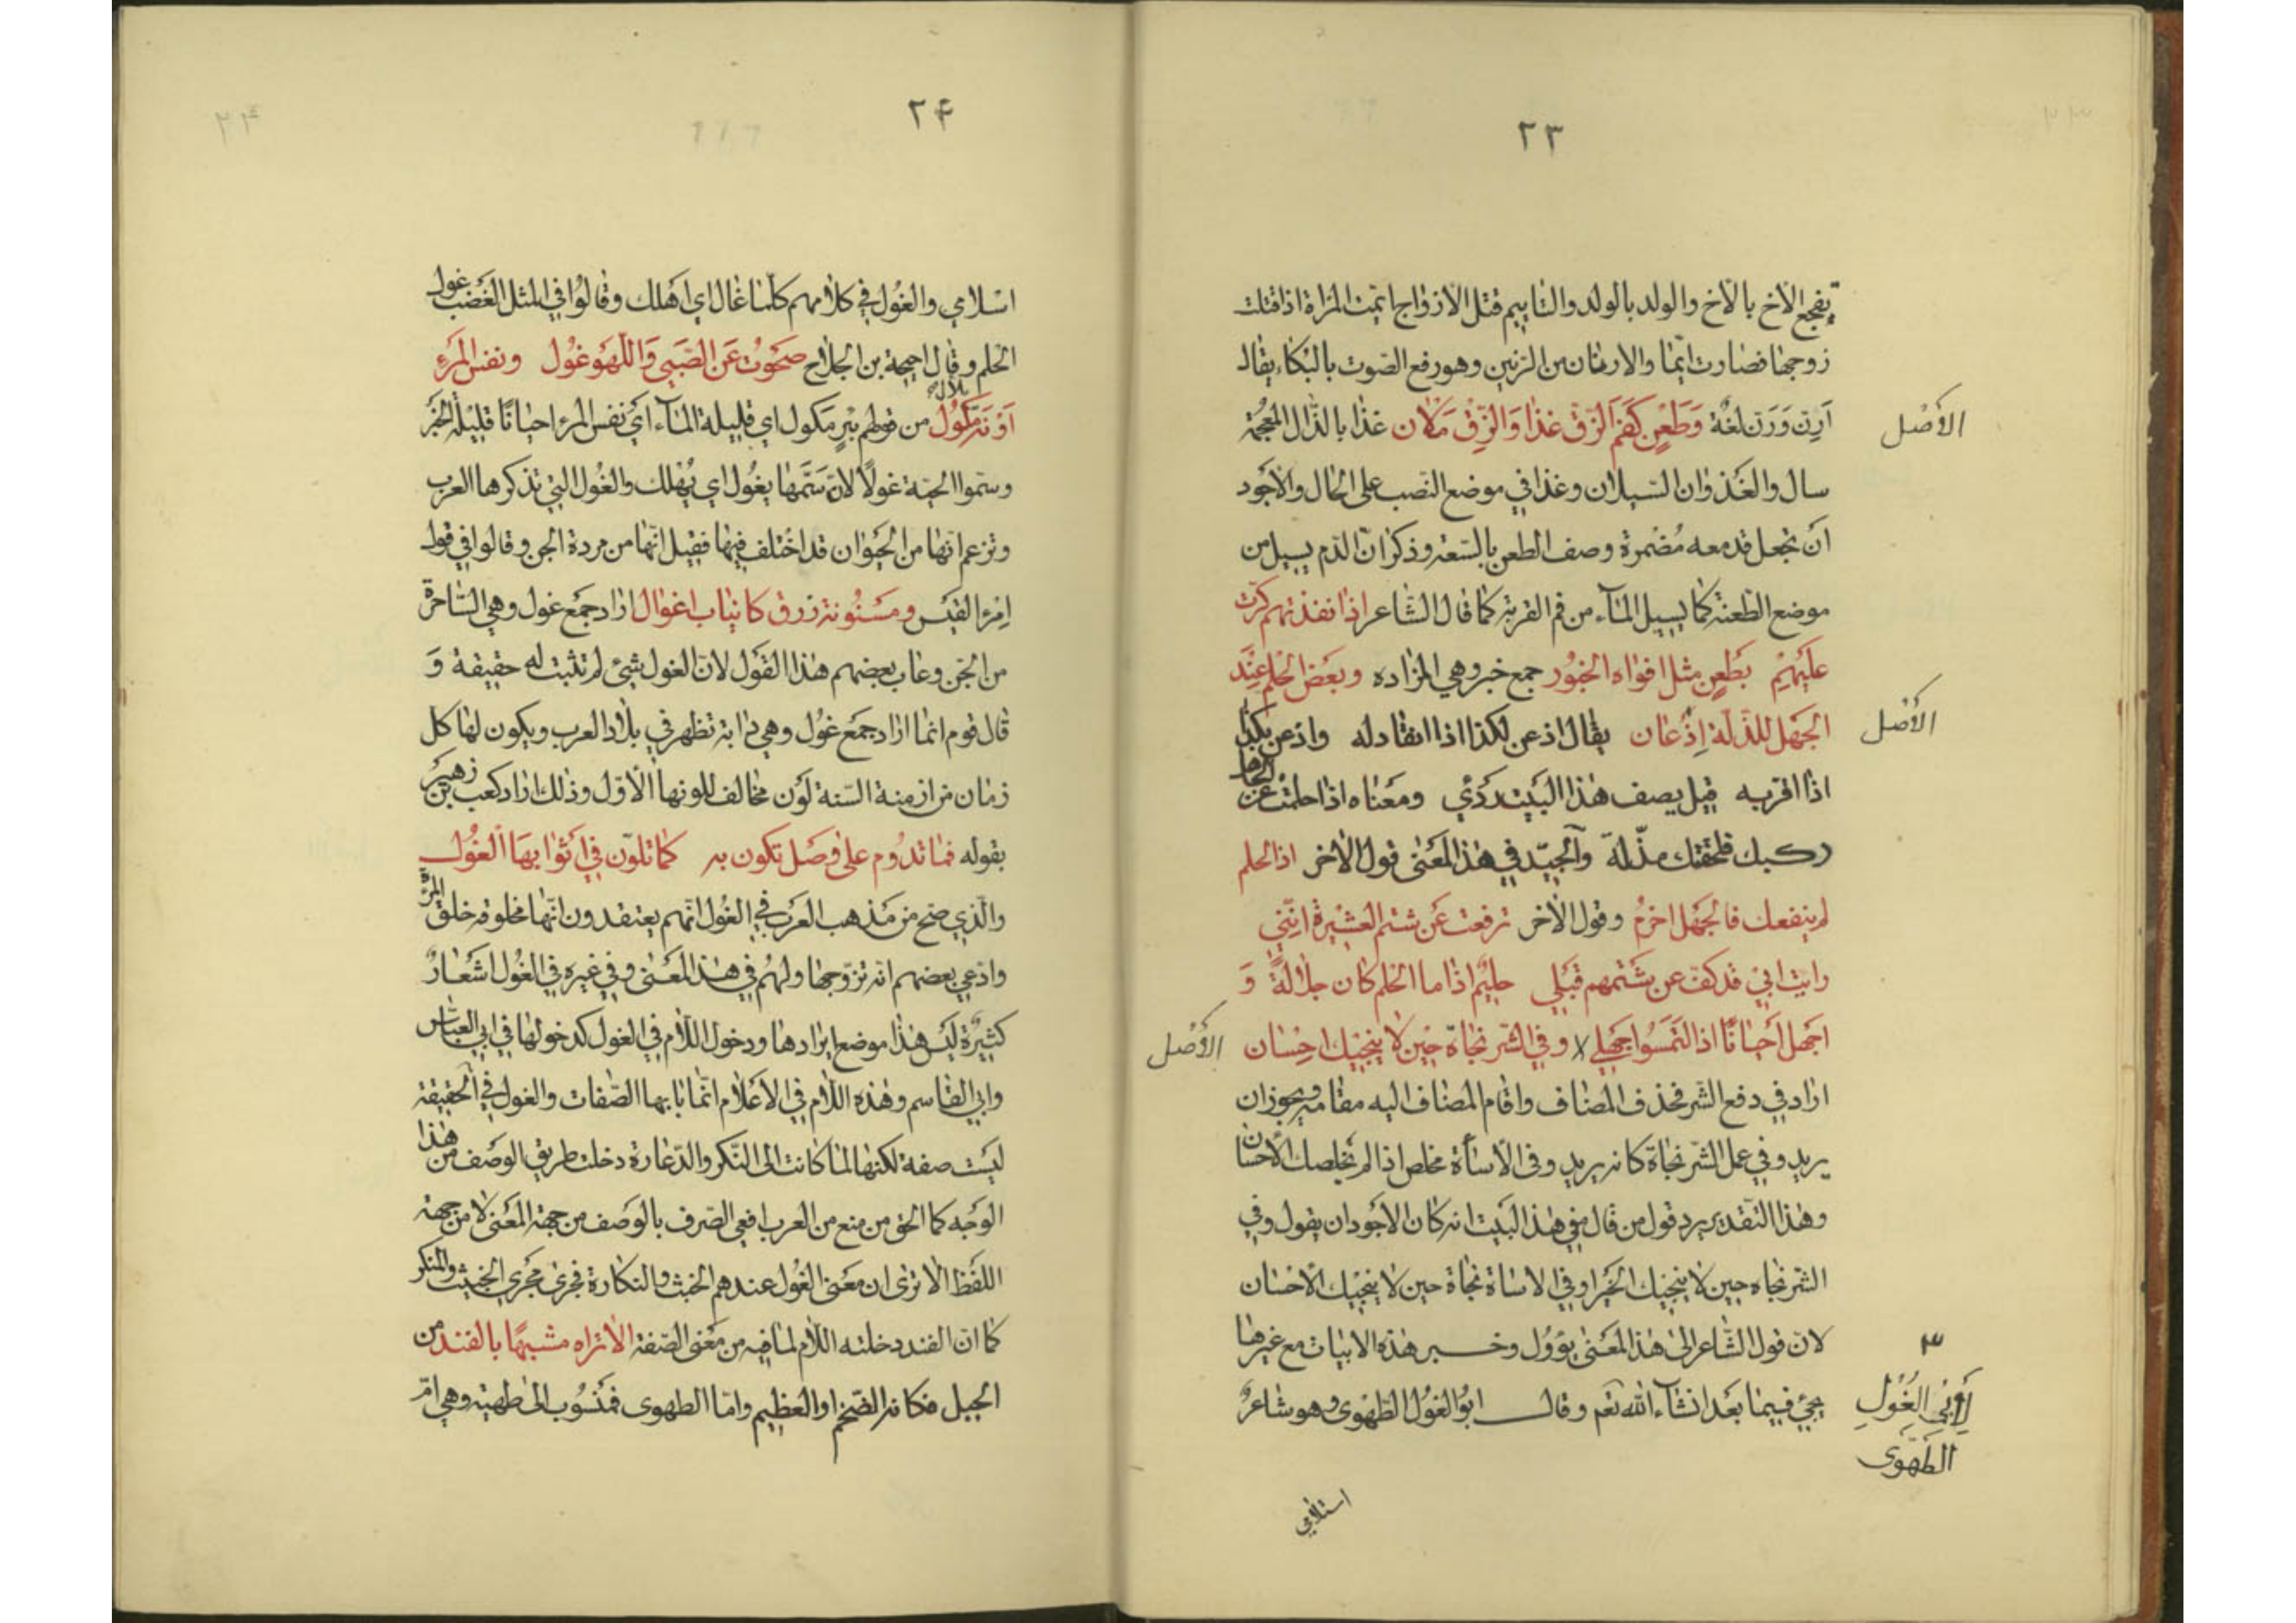 ٢٣
يفجع الأخ بالأخ والولد بالولد والتاييم قتل الازواج ايمت المرأة اذا قتلت
زوجها فصارت ايّما والارنان من الرنين وهو رفع الصوت بالبكاء يقال
اَرنّ وَرَن لغة وَطَعْنٍ كَفَمِ الزّقّ غذا وَالزِّقّ مَلْان غذا بالذال المعجمة
سال والغَذَوان السّيلان وغذا في موضع النصب على الحال والأجود
اَن تجعل قد معه مُضْمرة وصف الطعن بالسّعة وذكر انّ الدّم يسيل من
موضع الطعنة كما يسيل المآء من فم القربة كما قال الشاعر اذا نفذتهم كرّت
عَلَيْهِمْ بطَعنٍ مثل افواه الخبُور جمع خبر وهي المزاده وبَعْض الحلم عِنْدَ
الجَهْل للذّلّة اِذْعان يقال اذعن لكذا اذا انقاد له واذعن بكذا
اذا اقرّ به قيل يصف هذا البَيت ردَئي ومعناه اذا حلمت عن الجاهل
ركبك فلحقتك مذّلة والجيّد في هذا المعَنى قول الآخر اذا الحلم
لم ينفعك فالجَهْل احزمُ وقول الآخر ترفعت عَن شتم العشيرة انّني
رايت ابي قد كفّ عن شَتمهم قَبْلي حليمٌ اذا ما الحلم كان جلالةً وَ
اجهل اَحيانًا اذا التمسُوا جَهلي وفي الشّر نجاة حِين لا ينجيك احِسْان
اراد في دفع الشّر فحذف المضاف واقام المضاف اليه مقامه ويجوز ان
يريد وفي عمل الشّر نجاة كانه يريد وفى الاسأة مخلص اذا لم يخلصك الأحسان
وهذا التقدير يرد قول من قال في هذا البَيت انه كان الاجود ان يقول وفي
الشر نجاه حين لا ينجيك الخير او في الاساة نجاة حين لا ينجيك الاحسان
لان قول الشاعر الى هذا المعَنى يؤول وخبر هذه الابيات مع غيرها
يجئ فيما بَعد انشآء الله تعم وقال ابوُ الغوُل الطهَوى وهو شاعرٌ
اسلامي
الأَصْل
الأَصْل
الأَصْل
٣
لِأَبِي الغُوْلِ
الطُّهَوى
٢۴
اسْلامي والغوُل في كلامهم كلّما غال اي اهلك وقالوُا في المثل الغَضب غول
الحلم وقال احيحة بن الجلاح صَحَوتُ عَن الصّبَى وَاللّهْو غوُل ونفس المَرءِ
آوِنَة مَكُوُل من قولهم بئر مَكول اي قليلة المآء اَي نفس المرء احيانًا قليلة الخَير
وسَمّوا الحيّة غولاً لانّ سَمّها يغوُل اي يُهْلك والغُول التي تذكرها العرب
وتزعم انها من الحيَوان قد اختلف فيها فقيل انّها من مردة الجن وقالوا في قول
اِمْرِءِ القيَس ومَسْنُونة زرق كانياب اغوال اراد جمَع غول وهي السّاحرة
من الجن وعاب بعضهم هذا القَول لانّ الغول شئ لم تثبت له حقيقة وَ
قال قوم انما اراد جمَع غوُل وهي دابة تظهر في بلاد العرب ويكون لها كل
زمان من ازمنة السّنة لَون مخالف للونها الاوّل وذلك اراد كعب بن زهير
بقوله فما تدوُم على وصل تكون به كما تلوّن في اَثوابهَا الغُولُ
والّذي صَح من مَذهب العرَب في الغوُل انهم يعتقدون انّها مخلوقة خلق المرأة
وادّعى بعضهم انه تزوّجها ولهُم في هذا المعَنى وفي غيره في الغوُل اشعَارٌ
كثيرةٌ ليَس هذا موضع ايرادها ودخول اللاّم في الغول كدخولها في ابي العباس
وابي القاسم وهذه اللاّم في الاعَلام انّما بابها الصّفات والغول في الحقيقة
ليَست صفة لكنها لما كانت الى النّكر والدّعارة دخلت طريق الوصَف من هذا
الوَجه كما الحق من منع من العرب افعى الصّرف بالوصَف من جهة المعَنى لا من جهة
اللفَظ الا ترى ان معَنى الغوُل عندهم الخبث والنكارة فجرى مجَرى الخبيث والمنكر
كما انّ الفند دخلته اللاّم لما فيه من معَنى الصّفة الا تراه مشبهًا بالفند من
الجبل فكانه الضّخم او العظيم وامّا الطهوى فمنسُوب الى طهيّة وهي امّ